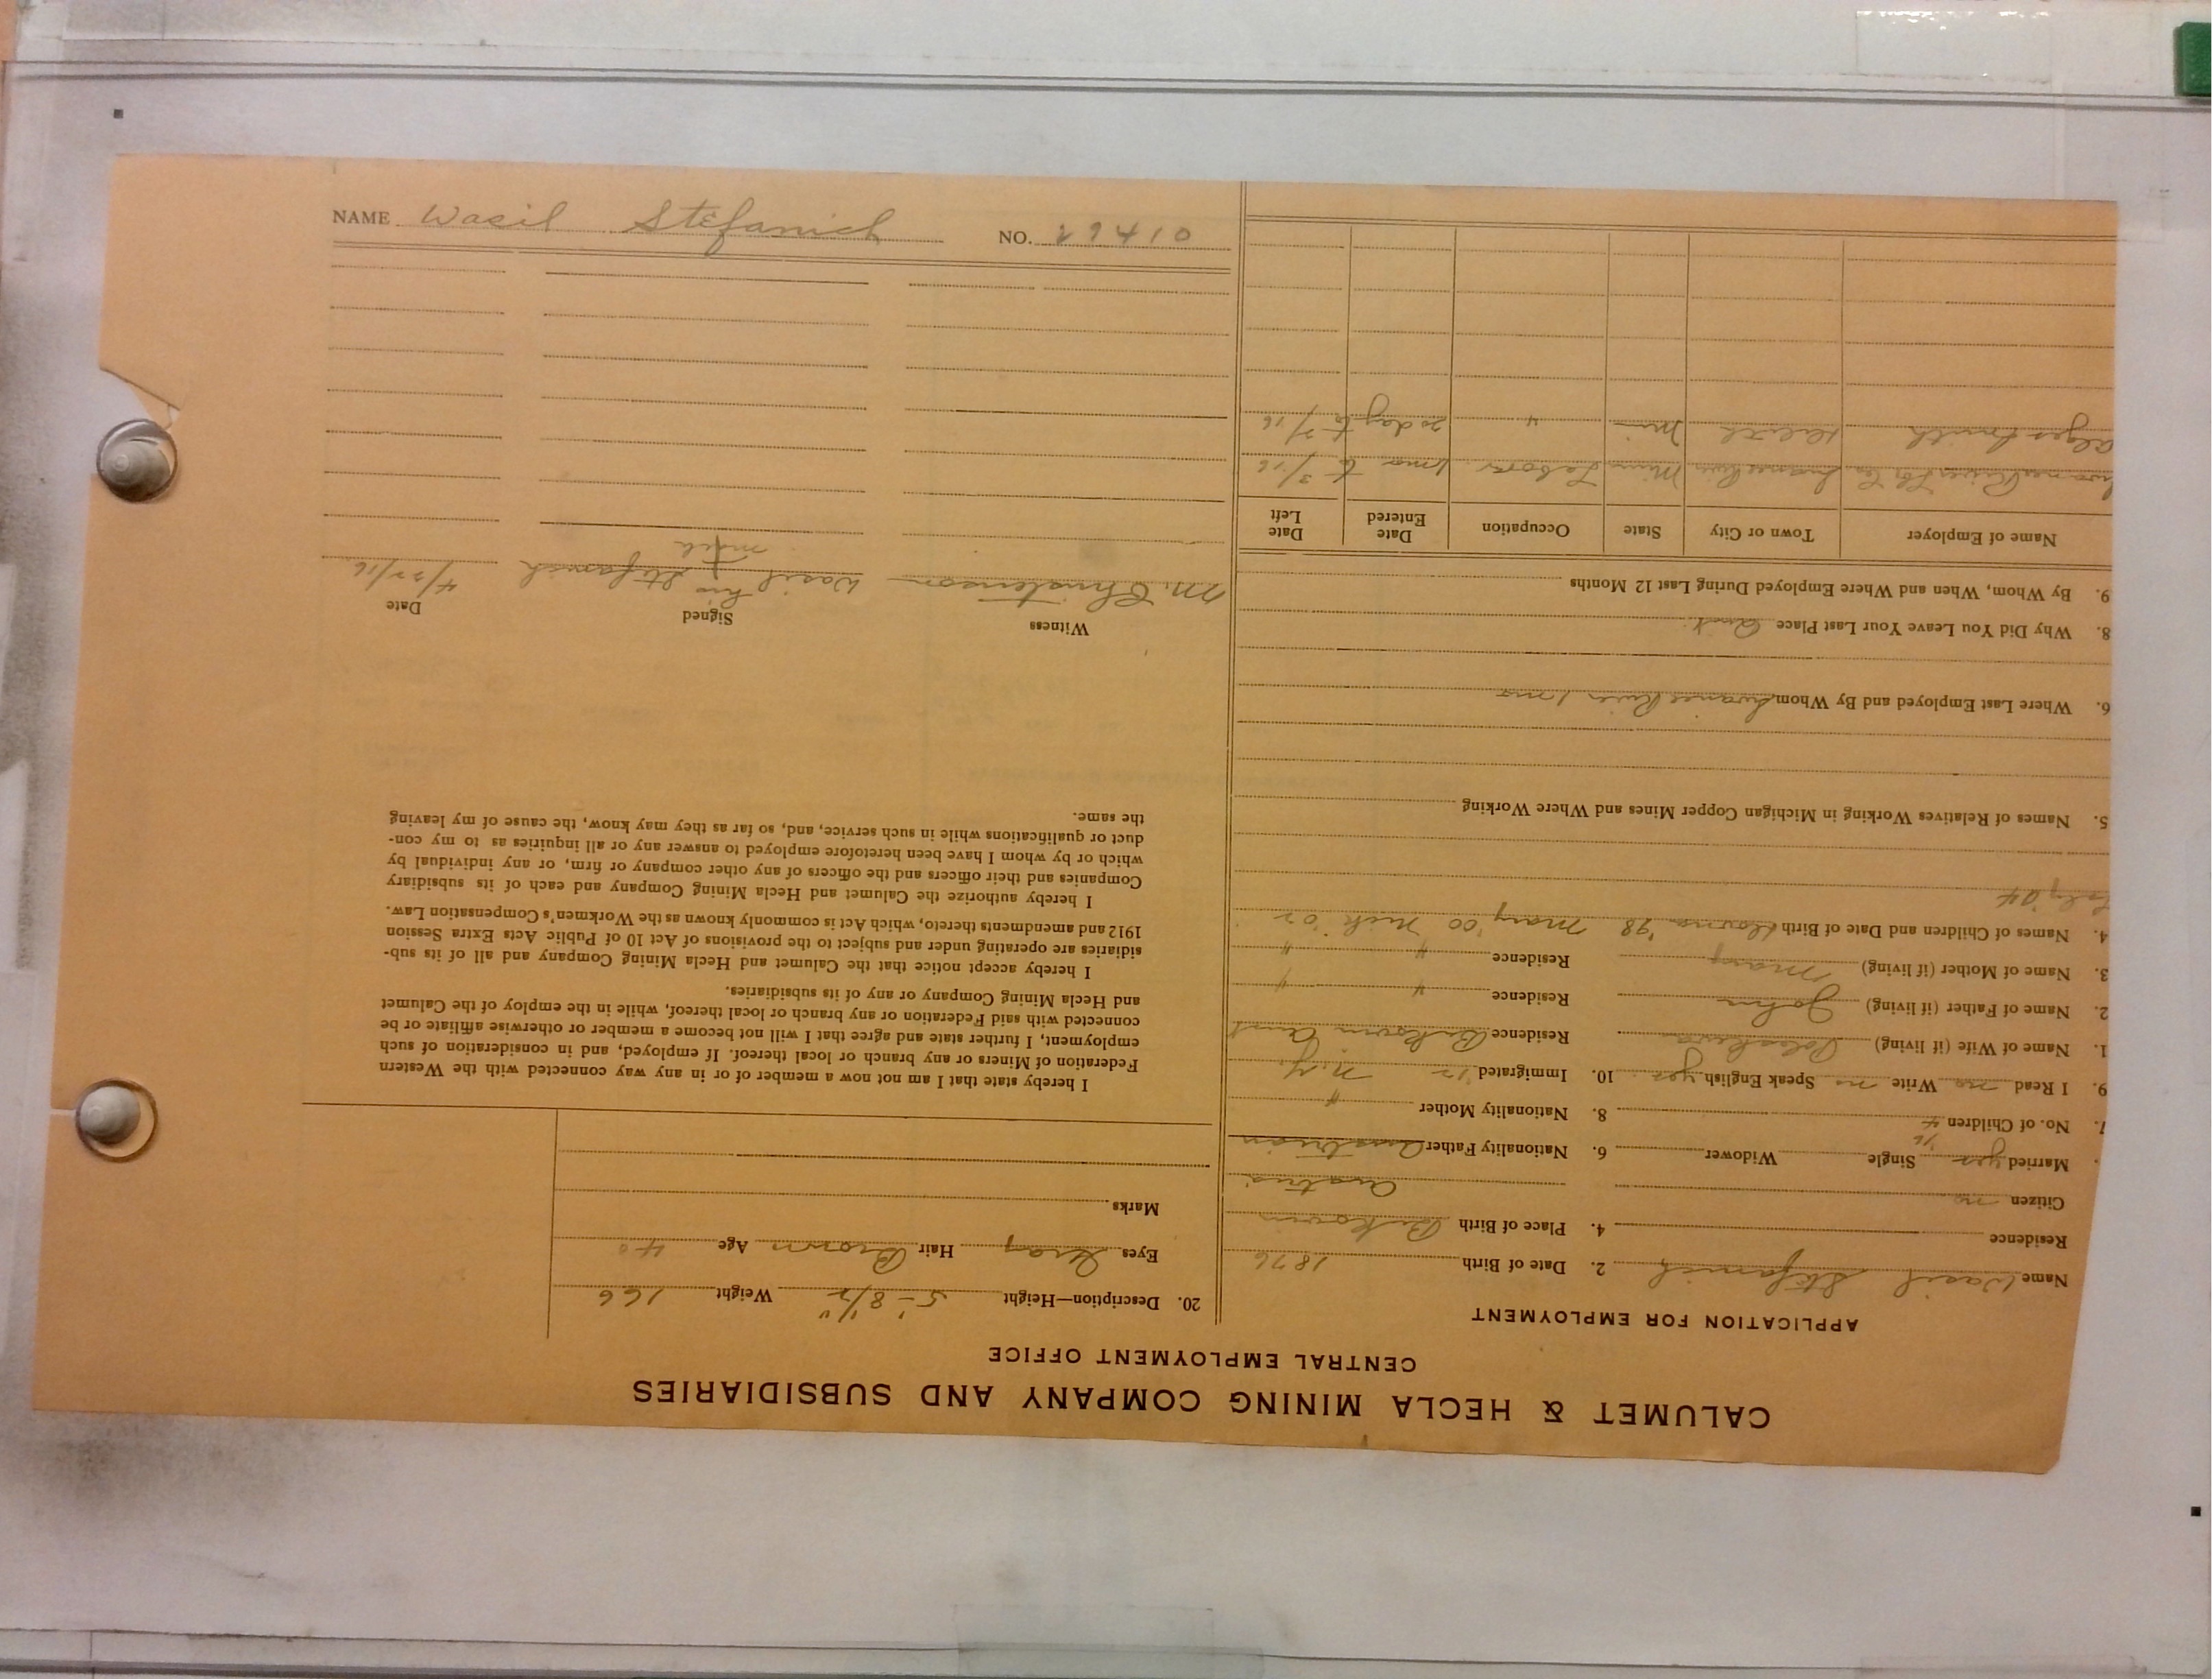 CALUMET & HECLA MINING COMPANY AND SUBSIDIARIES
CENTRAL EMPLOYMENT OFFICE
APPLICATION FOR EMPLOYMENT
Name Wasil Stefanich 2. Date of Birth 1876
Residence 4. Place of Birth Bukowin
Citizen no Austria
Married yes Single Widower 6. Nationality Father Austrian
7. No. of Children 4 8. Nationality Mother "
9. I Read no Write no Speak English yes 10. Immigrated '12 N.Y.
1. Name of Wife (if living) Residence Bukowin Aust
2. Name of Father (if living) John Residence " "
3. Name of Mother (if living) Mary Residence " "
4. Names of Children and Date of Birth '98 Mary '00 Nick '02
'04
5. Names of Relatives Working in Michigan Copper Mines and Where Working
6. Where Last Employed and By Whom Swanee River 1 mo
8. Why Did You Leave Your Last Place Quit
9. By Whom, When and Where Employed During Last 12 Months
Name of Employer Town or City State Occupation Date Entered Date Left
River Swanee River Minn Labor 1 mo to 3/16
Alger Smith Minn " 20 day to 2/16
20. Description—Height 5'-8 1/2" Weight 166
Eyes Gray Hair Brown Age 40
Marks
I hereby state that I am not now a member of or in any way connected with the Western
Federation of Miners or any branch or local thereof. If employed, and in consideration of such
employment, I further state and agree that I will not become a member or otherwise affiliate or be
connected with said Federation or any branch or local thereof, while in the employ of the Calumet
and Hecla Mining Company or any of its subsidiaries.
I hereby accept notice that the Calumet and Hecla Mining Company and all of its sub-
sidiaries are operating under and subject to the provisions of Act 10 of Public Acts Extra Session
1912 and amendments thereto, which Act is commonly known as the Workmen's Compensation Law.
I hereby authorize the Calumet and Hecla Mining Company and each of its subsidiary
Companies and their officers and the officers of any other company or firm, or any individual by
which or by whom I have been heretofore employed to answer any or all inquiries as to my con-
duct or qualifications while in such service, and, so far as they may know, the cause of my leaving
the same.
Witness Signed Date
M. Christenson Wasil his Stefanich 4/22/16
mark
NAME Wasil Stefanich NO. 29410